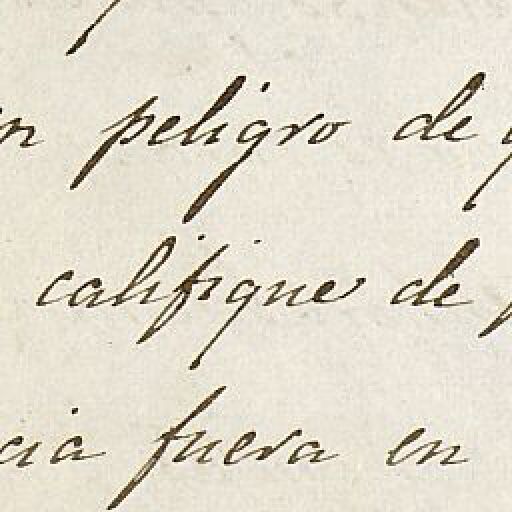 n peligro de
califique de
cia fuera en